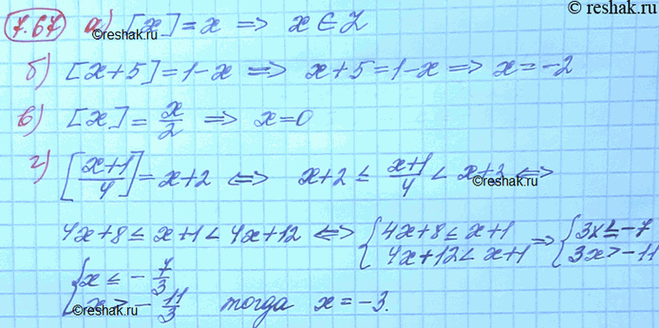 ©reshak.ru
7.67 а) [x] = x ⟹ x ∈ Z
©reshak.ru
б) [x+5] = 1-x ⟹ x+5 = 1-x ⟹ x = -2
в) [x] = x/2 ⟹ x = 0
г) [(x+1)/4] = x+2 ⟺ x+2 ≤ (x+1)/4 < x+3 ⟺
©reshak.ru
4x+8 ≤ x+1 < 4x+12 ⟺ { 4x+8 ≤ x+1 ⟹ { 3x ≤ -7
4x+12 < x+1 3x > -11
{ x ≤ -7/3
x > -11/3 тогда x = -3.
©reshak.ru